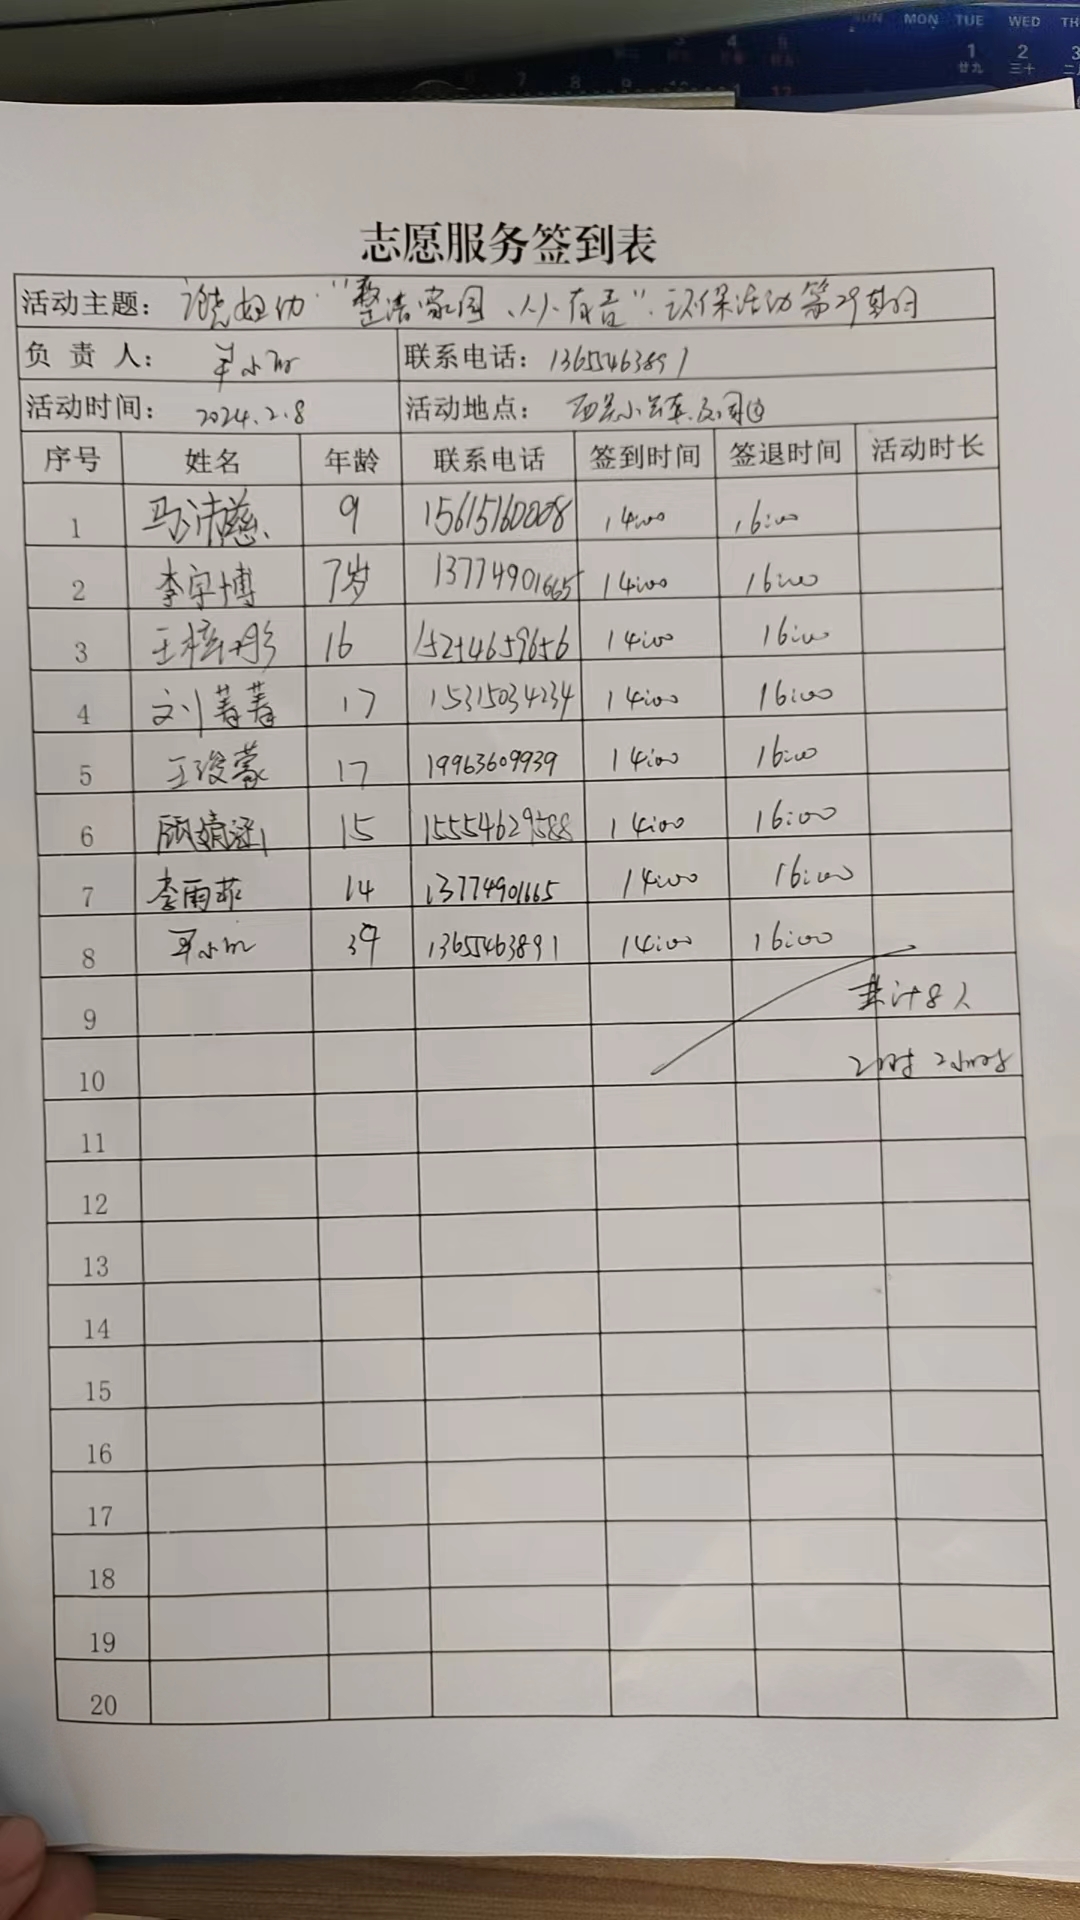 SUN MON TUE WED TH
3 4 5 1 2 3
廿九 三十
7 8 9 10 12
志愿服务签到表
活动主题： "整洁家园、人人有责" 环保活动第29期
负 责 人： 联系电话：13655463891
活动时间： 2024.2.8 活动地点：
序号 姓名 年龄 联系电话 签到时间 签退时间 活动时长
1 马沛慈 9 15615160008 14:00 16:00
2 李宇博 7岁 13774901665 14:00 16:00
3 王梓彤 16 15254659656 14:00 16:00
4 刘菁菁 17 15315034234 14:00 16:00
5 王浚蒙 17 19963609939 14:00 16:00
6 顾婧涵 15 15554629588 14:00 16:00
7 李雨菲 14 13774901665 14:00 16:00
8 39 13655463891 14:00 16:00
9 共计8人
10 2小时
11
12
13
14
15
16
17
18
19
20